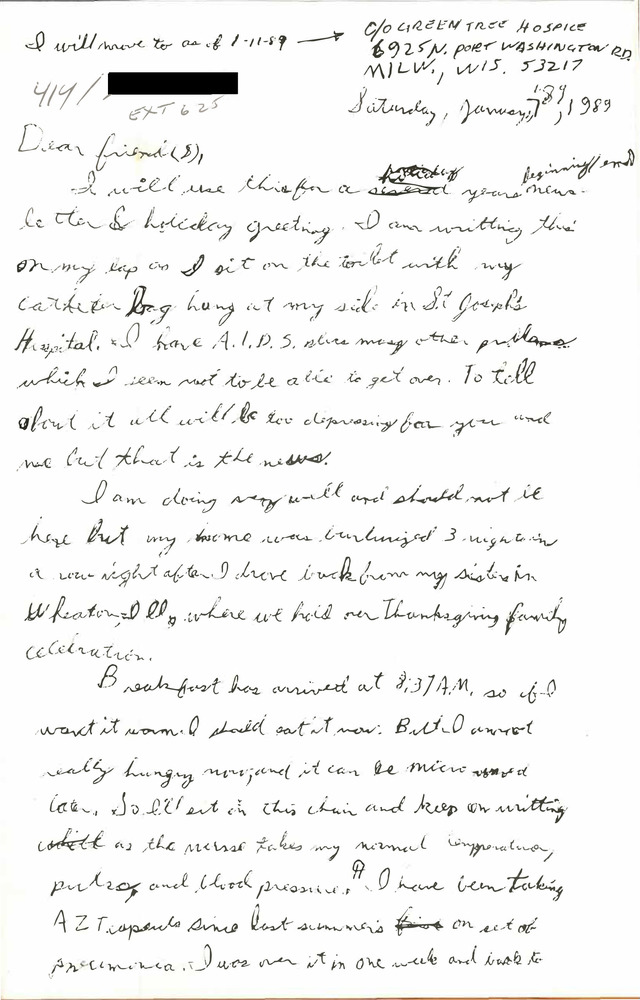 I will move to as of 1-11-89 → C/O GREEN TREE HOSPICE
6925 N. PORT WASHINGTON RD.
MILW., WIS. 53217
414/
EXT 625
Saturday, January, 7, 1989
Dear friend(s),
I will use this for a holiday years beginning/end news-
letter & holiday greeting. I am writting this
on my lap as I sit on the toilet with my
catheter bag hung at my side in St Joseph's
Hospital. I have A.I.D.S. plus many other problems
which I seem not to be able to get over. To tell
about it all will be too depressing for you and
me but that is the news.
I am doing very well and should not be
here but my home was burlurized 3 nights in
a row right after I drove back from my sisters in
Wheaton, Ill, where we hold our Thanksgiving family
celebration.
Breakfast has arrived at 8:37 A.M. so if I
want it warm I should eat it now. But I am not
really hungry now, and it can be micro waved
later. So I'll sit in this chair and keep on writting
as the nurse takes my normal temperature,
pulse, and blood pressure. I have been taking
AZT capsuls since last summers on set of
pneumonia. I was over it in one week and back to